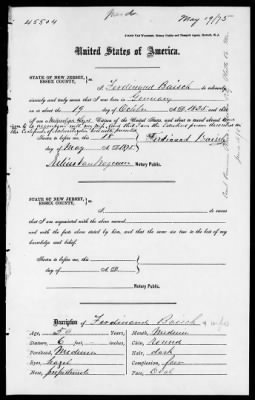 45504
May 19/75
United States of America.
STATE OF NEW JERSEY,
ESSEX COUNTY,
I Ferdinand Baisch do
sincerely and truly swear that I was born in Germany
on or about the 19 day of October A.D. 1825 and that
I am a Naturalized Citizen of the United States, and about to travel abroad
to be accompanied with my wife, and that I am the identical person described in
the Certificate of Naturalization herewith presented
Sworn to before me, this 18
day of May A.D. 1875
Ferdinand Baisch
Notary Public.
STATE OF NEW JERSEY,
ESSEX COUNTY,
I do swear
that I am acquainted with the above named
and with the facts above stated by him, and that the same are true to the best of my
knowledge and belief.
Sworn to before me, this
day of A.D.
Notary Public.
Description of Ferdinand Baisch & wife
Age, 50 Years,
Stature, 6 Feet
Forehead, Medium
Eyes, hazel
Nose, proportionate
Mouth, Medium
Chin, round
Hair, dark
Complexion, fair
Face, Oval